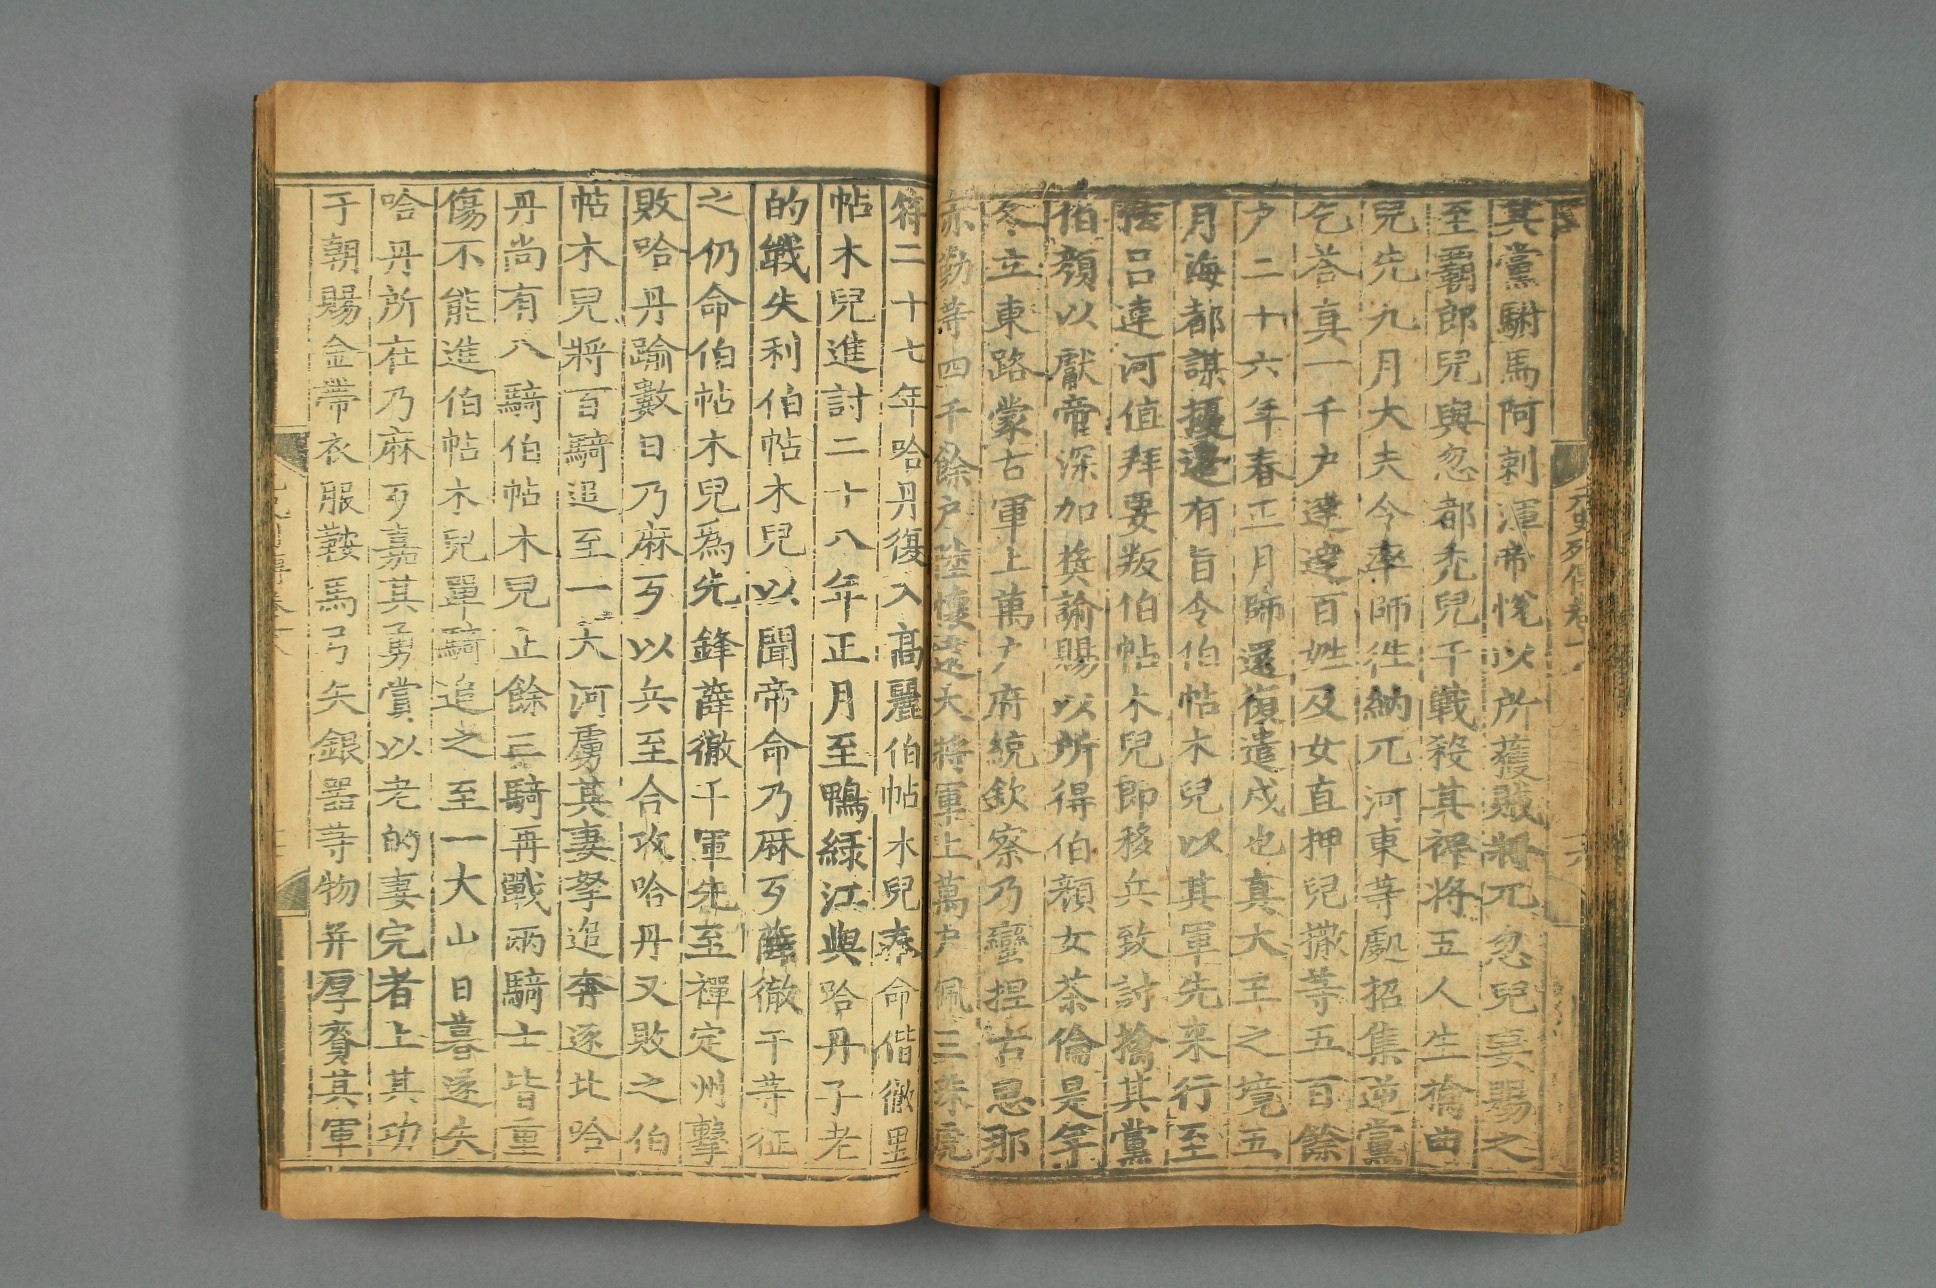 其黨駙馬阿剌渾帝悅以所獲賊將兀忽兒妻賜之
至霸郎兒與忽都禿兒千戰殺其裨將五人生擒曲
兒先九月大夫令率師往納兀河東等處招集逆黨
乞荅真一千戶達達百姓及女直押兒撒等五百餘
戶二十六年春正月師還復遣戍也真大王之境五
月海都謀擾邊有旨令伯帖木兒以其軍先來行至
怯呂連河值拜要叛伯帖木兒即移兵致討擒其黨
伯顏以獻帝深加奬諭賜以所得伯顏女茶倫是年
冬立東路蒙古軍上萬户府統欽察乃蠻捏古思那
亦勤等四千餘户陞懷遠大將軍上萬户佩三珠虎
符二十七年哈丹復入高麗伯帖木兒奉命偕徹里
帖木兒進討二十八年正月至鴨緑江與哈丹子老
的戰失利伯帖木兒以聞帝命乃麻歹薛徹干等征
之仍命伯帖木兒爲先鋒薛徹干軍先至禪定州擊
敗哈丹踰數日乃麻歹以兵至合攻哈丹又敗之伯
帖木兒將百騎追至一大河虜其妻孥追奔逐北哈
丹尚有八騎伯帖木兒止餘三騎再戰兩騎士皆重
傷不能進伯帖木兒單騎追之至一大山日暮遂失
哈丹所在乃麻歹嘉其勇賞以老的妻完者上其功
于朝賜金帶衣服鞍馬弓矢銀器等物并厚賚其軍
元史列傳卷十八
六